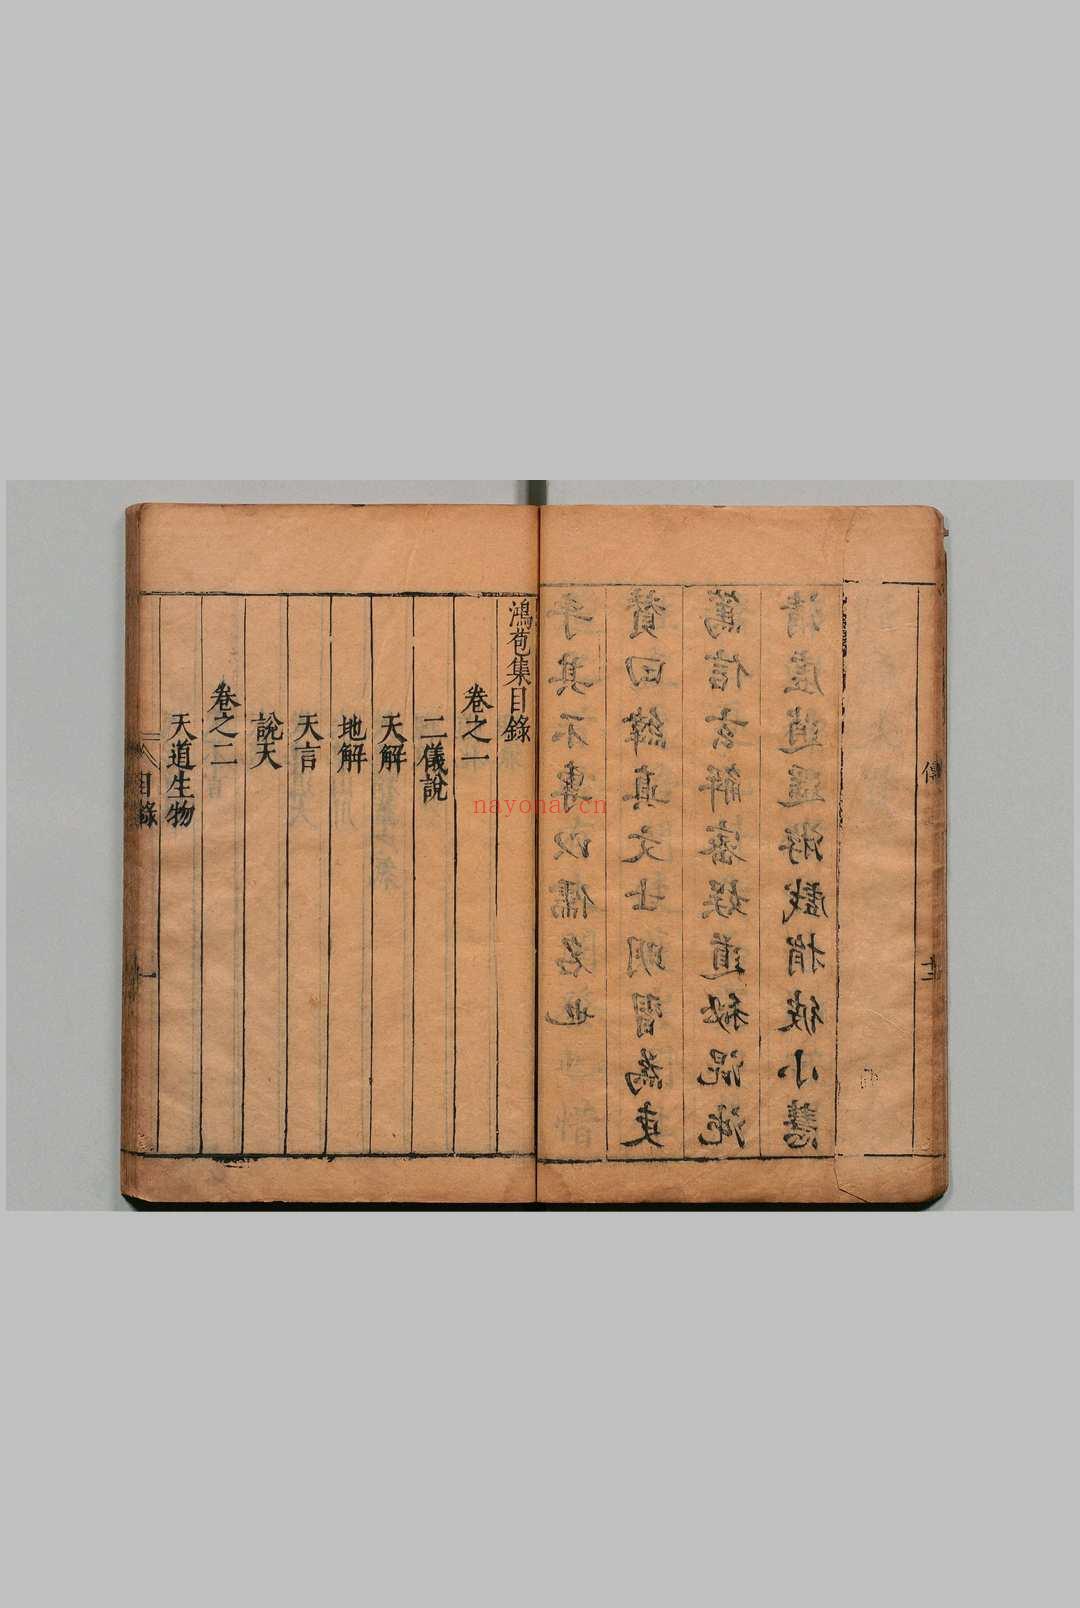 傳
乎其不專以儒名也
贊曰緯真 明習為吏
篤信玄解 道秘混沌
清虛逍遙游戲捐彼小慧
鴻苞集目錄
卷之一
二儀說
天解
地解
天言
說天
卷之二
天道生物
目錄
一
nayona.cn